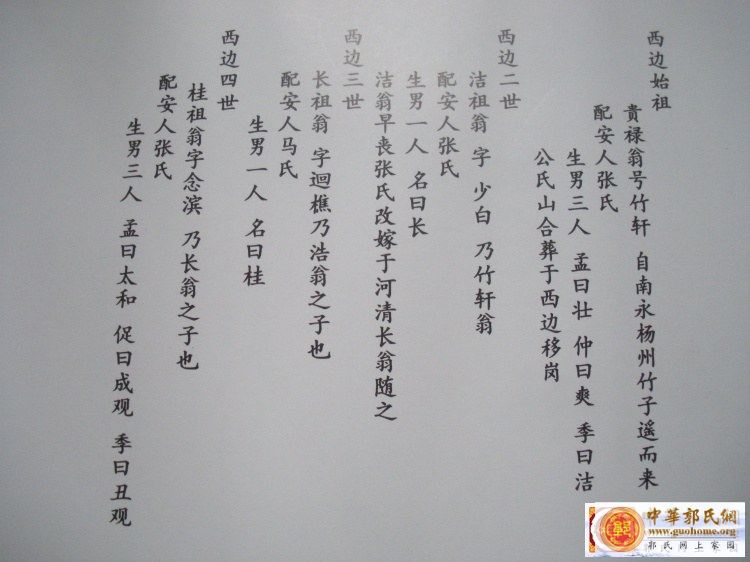 西边始祖
贵禄翁号竹轩 自南永杨州竹子遥而来
配安人张氏
生男三人 孟曰壮 仲曰爽 季曰洁
公氏山合葬于西边移岗
西边二世
洁祖翁 字 少白 乃竹轩翁
配安人张氏
生男一人 名曰长
洁翁早丧张氏改嫁于河清长翁随之
西边三世
长祖翁 字迴樵乃浩翁之子也
配安人马氏
生男一人 名曰桂
西边四世
桂祖翁字念滨 乃长翁之子也
配安人张氏
生男三人 孟曰太和 促曰成观 季曰丑观
郭
中華郭氏網
www.guohome.org
郭氏网上家园